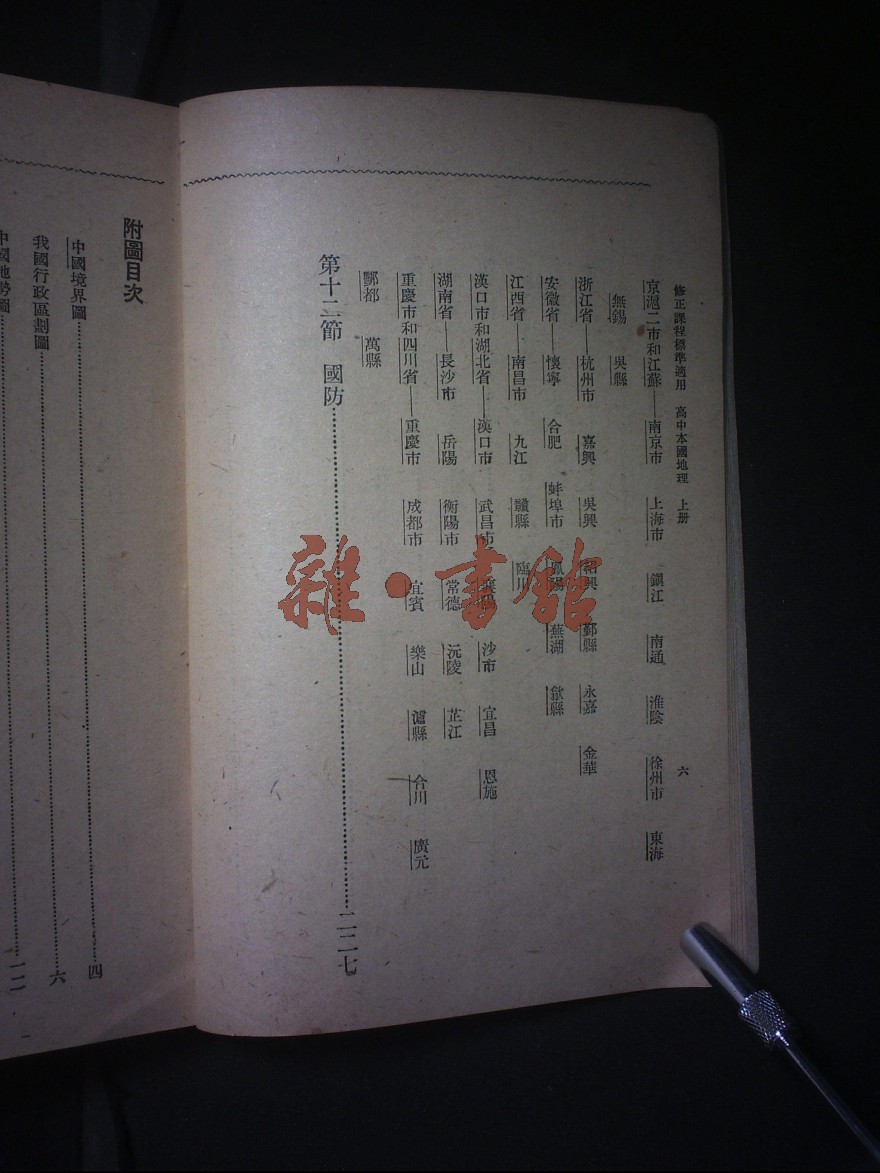 修正課程標準適用 高中本國地理 上册 六
京滬二市和江蘇——南京市 上海市 鎭江 南通 淮陰 徐州市 東海
無錫 吳縣
浙江省——杭州市 嘉興 吳興 紹興 鄞縣 永嘉 金華
安徽省——懷寧 合肥 蚌埠市 鳳陽 蕪湖 歙縣
江西省——南昌市 九江 贛縣 臨川
漢口市和湖北省——漢口市 武昌市 襄陽 沙市 宜昌 恩施
湖南省——長沙市 岳陽 衡陽市 常德 沅陵 芷江
重慶市和四川省——重慶市 成都市 宜賓 樂山 瀘縣 合川 廣元
酆都 萬縣
第十二節 國防……二二七
附圖目次
中國境界圖……四
我國行政區劃圖……六
中國地勢圖……一一
雜·書館